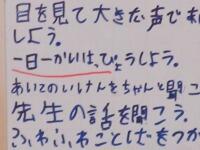 目を見て大きな声でお
しよう。
一日一かいは、ぴょうしよう。
あいてのいけんをちゃんと聞こ
先生の話を聞こう。
ふわふわことばをつか